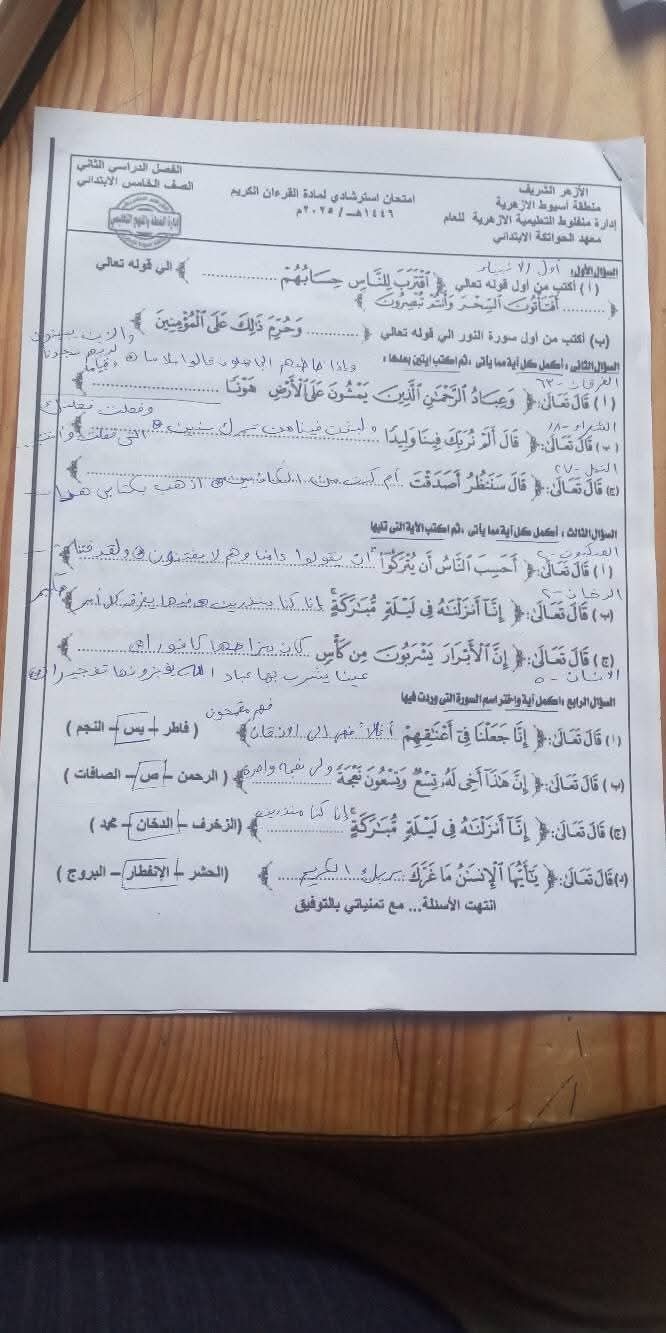 الأزهر الشريف
منطقة أسيوط الازهرية
إدارة منفلوط التعليمية الازهرية للعام
معهد الحواتكة الابتدائي
امتحان استرشادي لمادة القرءان الكريم
١٤٤٦هـ / ٢٠٢٥م
الفصل الدراسي الثاني
الصف الخامس الابتدائي
السؤال الأول: أول الانبياء
( أ ) أكتب من اول قوله تعالي ﴿ أَقْتَرَبَ لِلنَّاسِ حِسَابُهُمْ ............ ﴾ الي قوله تعالي
﴿ ............ أَفَتَأْتُونَ السِّحْرَ وَأَنتُمْ تُبْصِرُونَ ﴾
(ب) أكتب من اول سورة النور الي قوله تعالي ﴿ ............ وَحُرِّمَ ذَلِكَ عَلَى الْمُؤْمِنِينَ ﴾
السؤال الثانى : أكمل كل آية مما يأتى ، ثم اكتب ايتين بعدها : وإذا خاطبهم الجاهلون قالوا سلاما والذين يبيتون لربهم سجدا وقياما
الفرقان - ٦٣
( أ ) قَالَ تَعَالَىٰ: ﴿ وَعِبَادُ الرَّحْمَٰنِ الَّذِينَ يَمْشُونَ عَلَى الْأَرْضِ هَوْنًا ............ ﴾
الشعراء - ١٨
(ب) قَالَ تَعَالَىٰ: ﴿ قَالَ أَلَمْ نُرَبِّكَ فِينَا وَلِيدًا ولبثت فينا من عمرك سنين وفعلت فعلتك التي فعلت وأنت
النمل - ٢٧
(ج) قَالَ تَعَالَىٰ: ﴿ قَالَ سَنَنظُرُ أَصَدَقْتَ أم كنت من الكاذبين اذهب بكتابي هذا ﴾
السؤال الثالث : أكمل كل آية مما يأتى ، ثم اكتب الآية التى تليها
العنكبوت - ٢
( أ ) قَالَ تَعَالَىٰ: ﴿ أَحَسِبَ النَّاسُ أَن يُتْرَكُوا أن يقولوا ءامنا وهم لا يفتنون ولقد فتنا ﴾
الدخان - ٣
(ب) قَالَ تَعَالَىٰ: ﴿ إِنَّا أَنزَلْنَاهُ فِي لَيْلَةٍ مُّبَارَكَةٍ إنا كنا منذرين فيها يفرق كل أمر حكيم ﴾
(ج) قَالَ تَعَالَىٰ: ﴿ إِنَّ الْأَبْرَارَ يَشْرَبُونَ مِن كَأْسٍ كان مزاجها كافورا ............ ﴾
الانسان - ٥ عينا يشرب بها عباد الله يفجرونها تفجيرا
السؤال الرابع : اكمل آية واختر اسم السورة التى وردت فيها
(١) قَالَ تَعَالَىٰ: ﴿ إِنَّا جَعَلْنَا فِي أَعْنَاقِهِمْ أغلالا فهى إلى الاذقان فهم مقمحون ﴾ ( فاطر – يس – النجم )
(ب) قَالَ تَعَالَىٰ: ﴿ إِنَّ هَٰذَا أَخِي لَهُ تِسْعٌ وَتِسْعُونَ نَعْجَةً ولى نعجة واحدة ﴾ ( الرحمن – ص – الصافات )
(ج) قَالَ تَعَالَىٰ: ﴿ إِنَّا أَنزَلْنَاهُ فِي لَيْلَةٍ مُّبَارَكَةٍ إنا كنا منذرين ﴾ (الزخرف – الدخان – محمد )
(د) قَالَ تَعَالَىٰ: ﴿ يَا أَيُّهَا الْإِنسَانُ مَا غَرَّكَ بربك الكريم ............ ﴾ (الحشر – الإنفطار – البروج )
انتهت الأسئلة... مع تمنياتي بالتوفيق